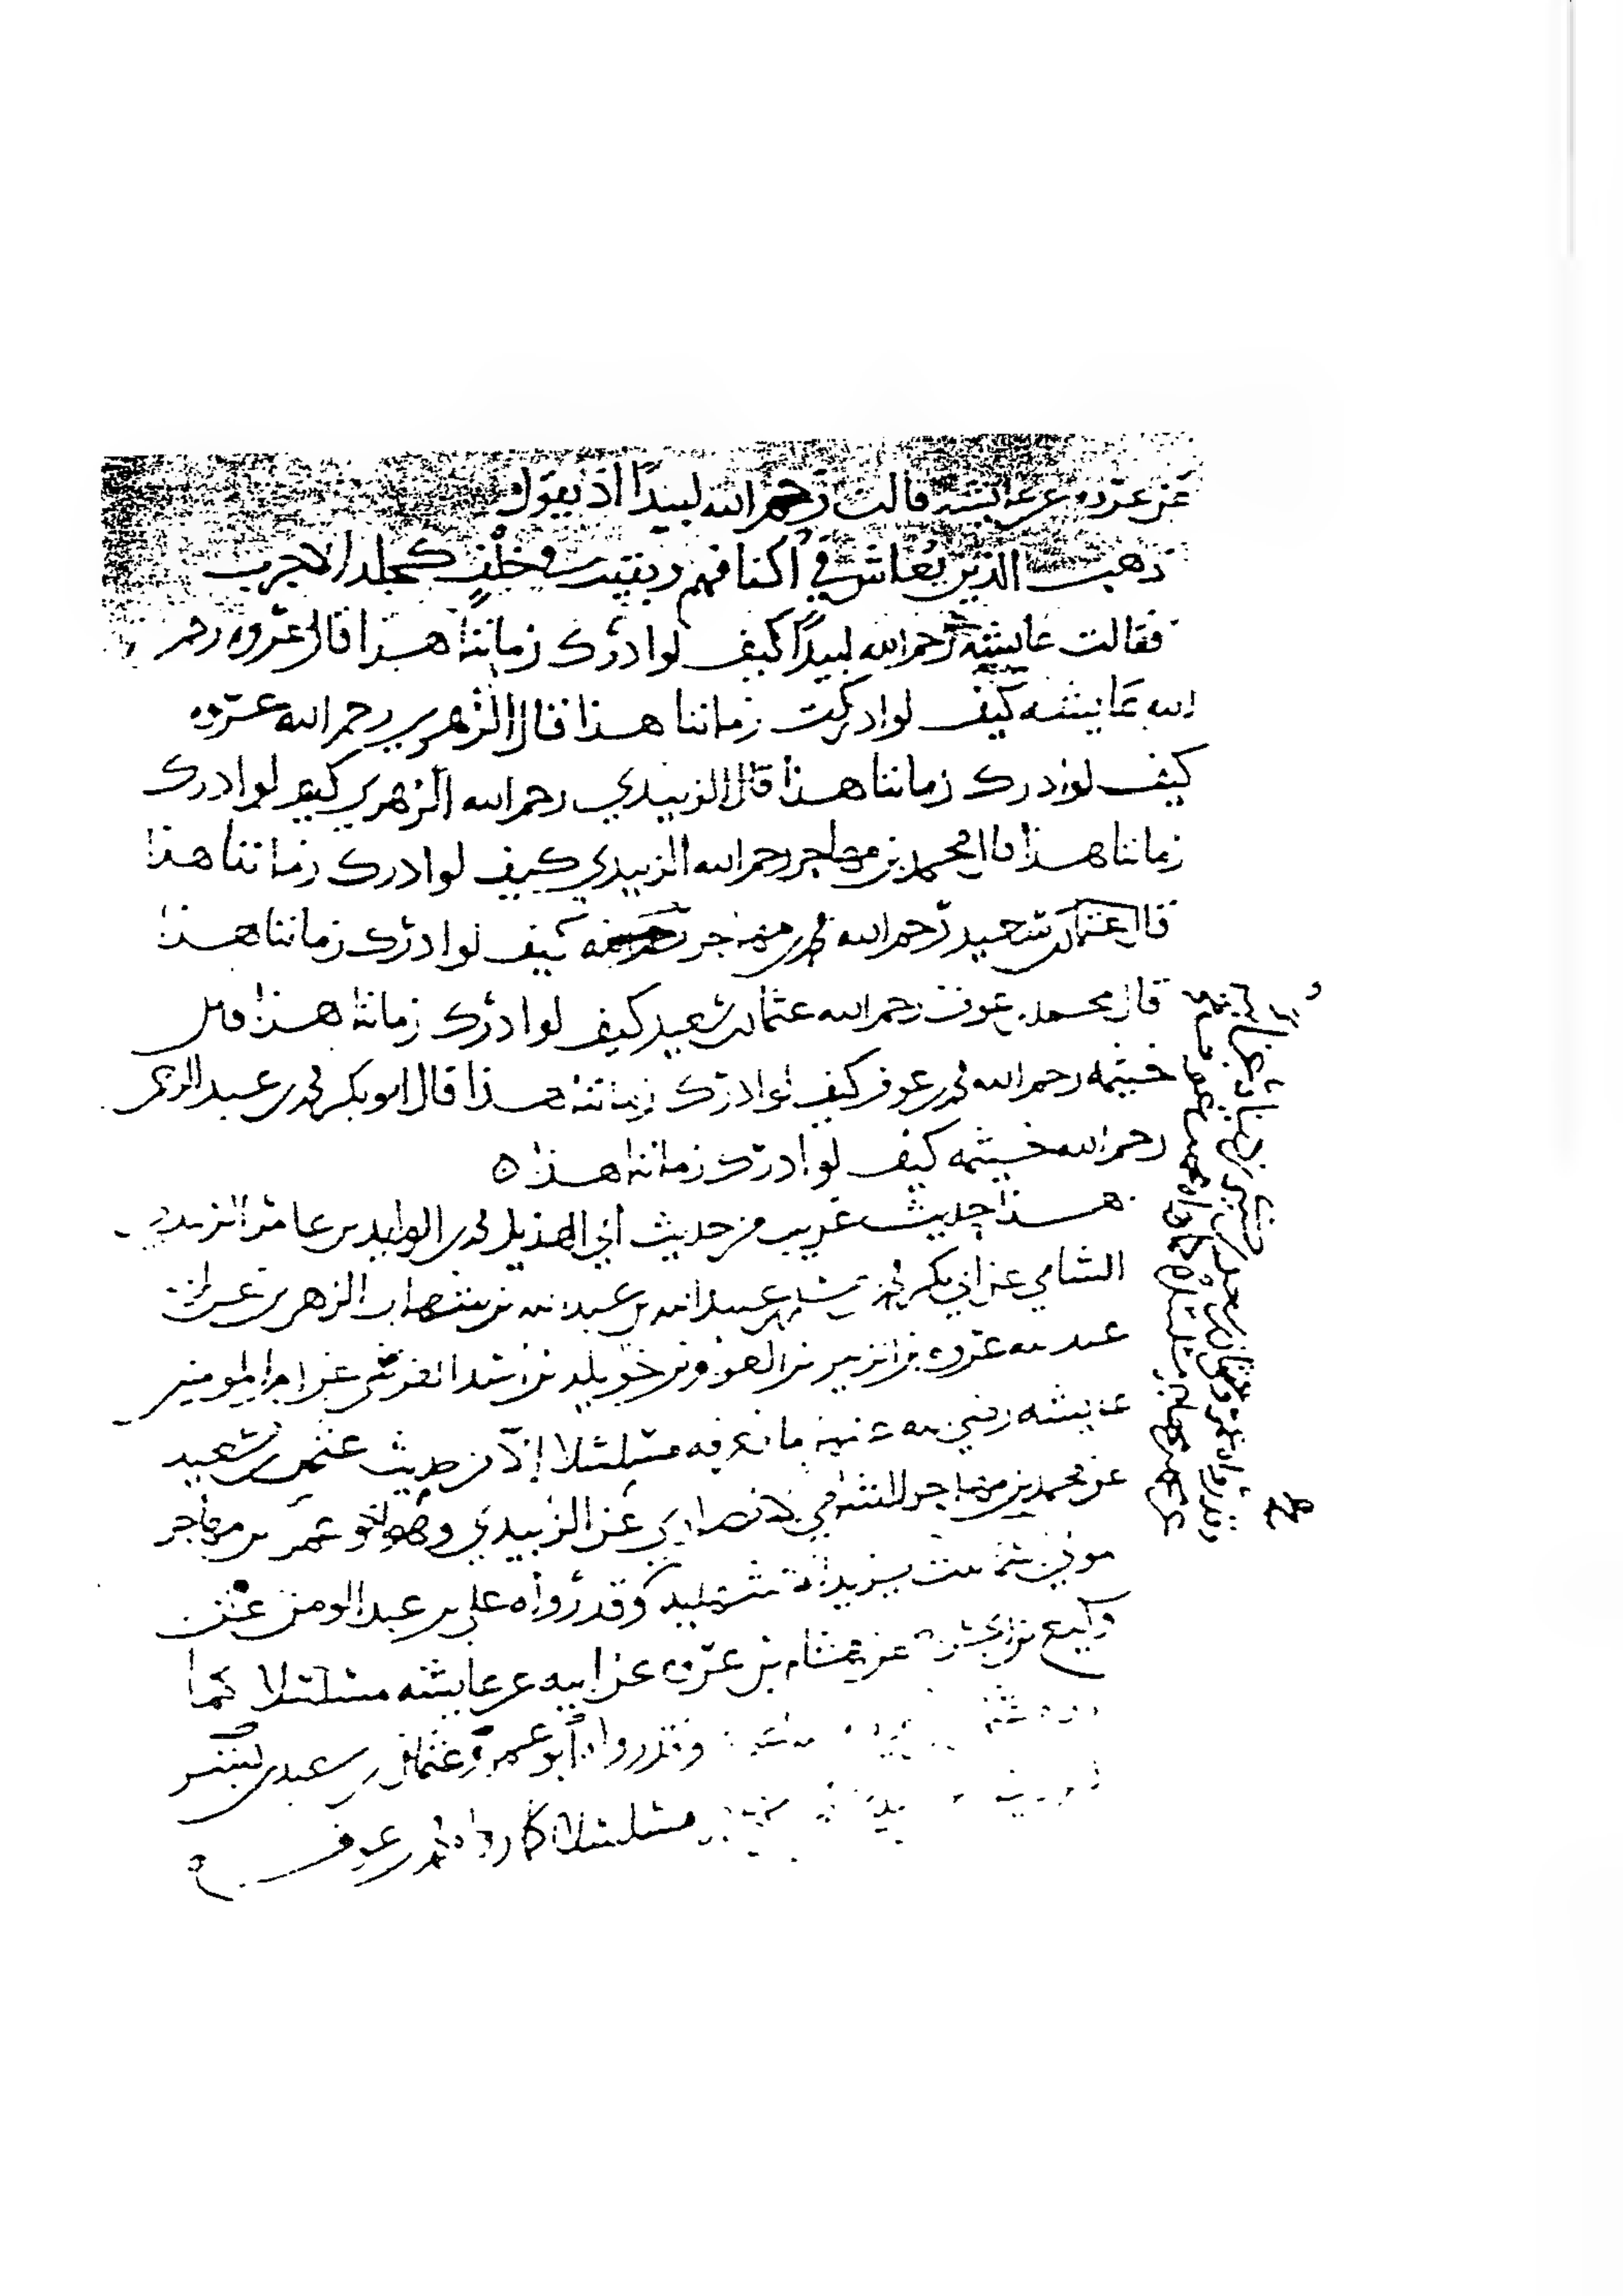 عن عروه عن عايشه قالت رحم الله لبيدًا اذ يقول
ذهب الذين يُعاش في أكنافهم وبقيت في خلفٍ كجلد الاجرب
فقالت عايشه رحم الله لبيدًا كيف لو ادرك زماننا هذا قال عروه رحم
الله عايشه كيف لو ادركت زماننا هذا قال الزهري رحم الله عروه
كيف لو ادرك زماننا هذا قال الزبيدي رحم الله الزهري كيف لو ادرك
زماننا هذا قال محمد بن مهاجر رحم الله الزبيدي كيف لو ادرك زماننا هذا
قال عثمان بن سعيد رحم الله محمد بن مهاجر كيف لو ادرك زماننا هذا
قال محمد بن عوف رحم الله عثمان بن سعيد كيف لو ادرك زماننا هذا قال
خيثمه رحم الله محمد بن عوف كيف لو ادرك زماننا هذا قال ابو بكر محمد بن عبد الرحمن
رحم الله خيثمه كيف لو ادرك زماننا هذا ه
هذا حديث غريب من حديث أبي الهذيل محمد بن الوليد بن عامر الزبيدي
الشامي عن ابي بكر محمد بن مسلم بن عبيد الله بن عبد الله بن شهاب الزهري عن ابي
عبد الله عروه بن الزبير بن العوام بن خويلد بن اسد القرشي عن ام المومنين
عايشه رضي الله عنها ما نعرفه مسلسلا إلا من حديث عثمن بن سعيد
عن محمد بن مهاجر الشامي الانصاري عن الزبيدي وهو اخو عمرو بن مهاجر
مولى اسما بنت يزيد الاشهليه وقد رواه علي بن عبد المومن عن
وكيع بن الجراح عن هشام بن عروه عن ابيه عن عايشه مسلسلا كما
وقد رواه أبو عمرو عثمان بن سعيد بن
مسلسلا كما رواه محمد بن عوف ه